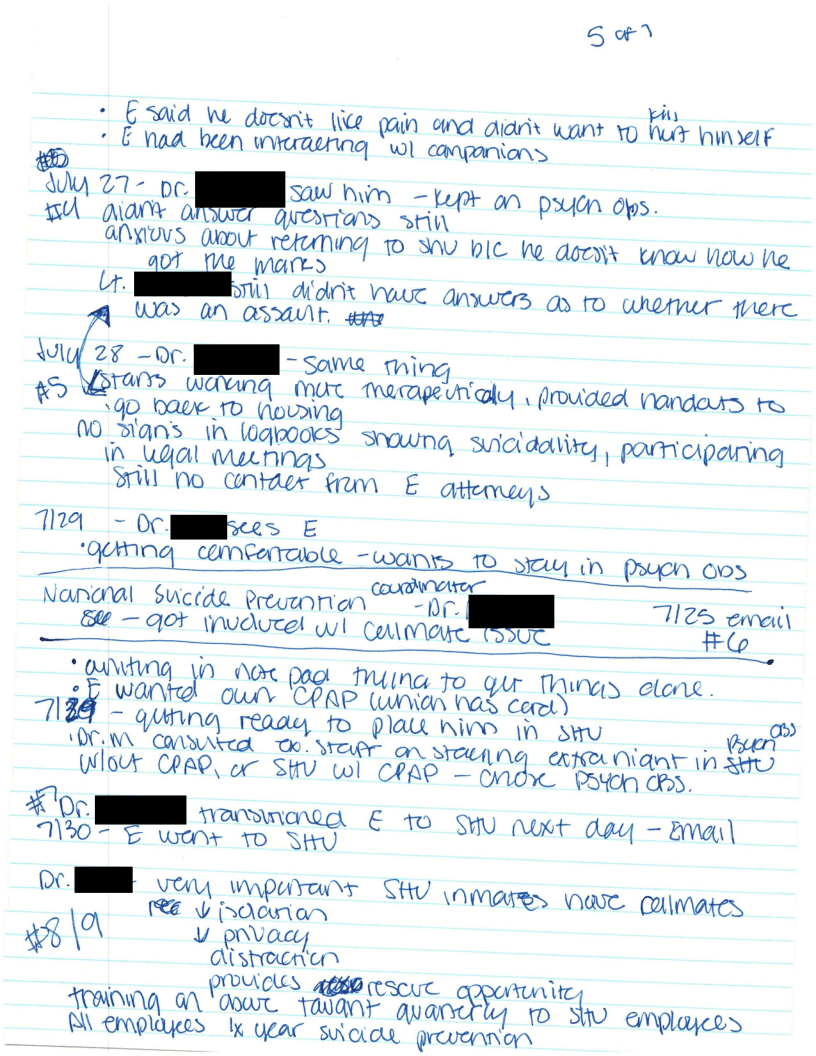 5 of 7
• E said he doesn't like pain and didn't want to kill hurt himself
• E had been interacting w/ companions
July 27 - Dr. saw him - kept on psych obs.
#4 didn't answer questions still
anxious about returning to SHU b/c he doesn't know how he
got the marks
Lt. still didn't have answers as to whether there
was an assault.
July 28 - Dr. - Same thing
#5 starts working more therapeutically, provided handouts to
• go back to housing
no signs in logbooks showing suicidality, participating
in legal meetings
Still no contact from E attorneys
7/29 - Dr. sees E
• getting comfortable - wants to stay in psych obs
National Suicide Prevention coordinator
- Dr. 7/25 email
see - got involved w/ cellmate issue #6
• writing in note pad trying to get things done.
• E wanted own CPAP (which has cord)
7/29 - getting ready to place him in SHU
• Dr. M consulted ex. staff on staying extra night in SHU Psych OBS
w/out CPAP, or SHU w/ CPAP - chose psych obs.
#7 Dr. transitioned E to SHU next day - Email
7/30 - E went to SHU
Dr. very important SHU inmates have cellmates
↓ isolation
#8/9 ↓ privacy
distraction
provides rescue opportunity
training on above quarterly to SHU employees
All employees 1x year suicide prevention